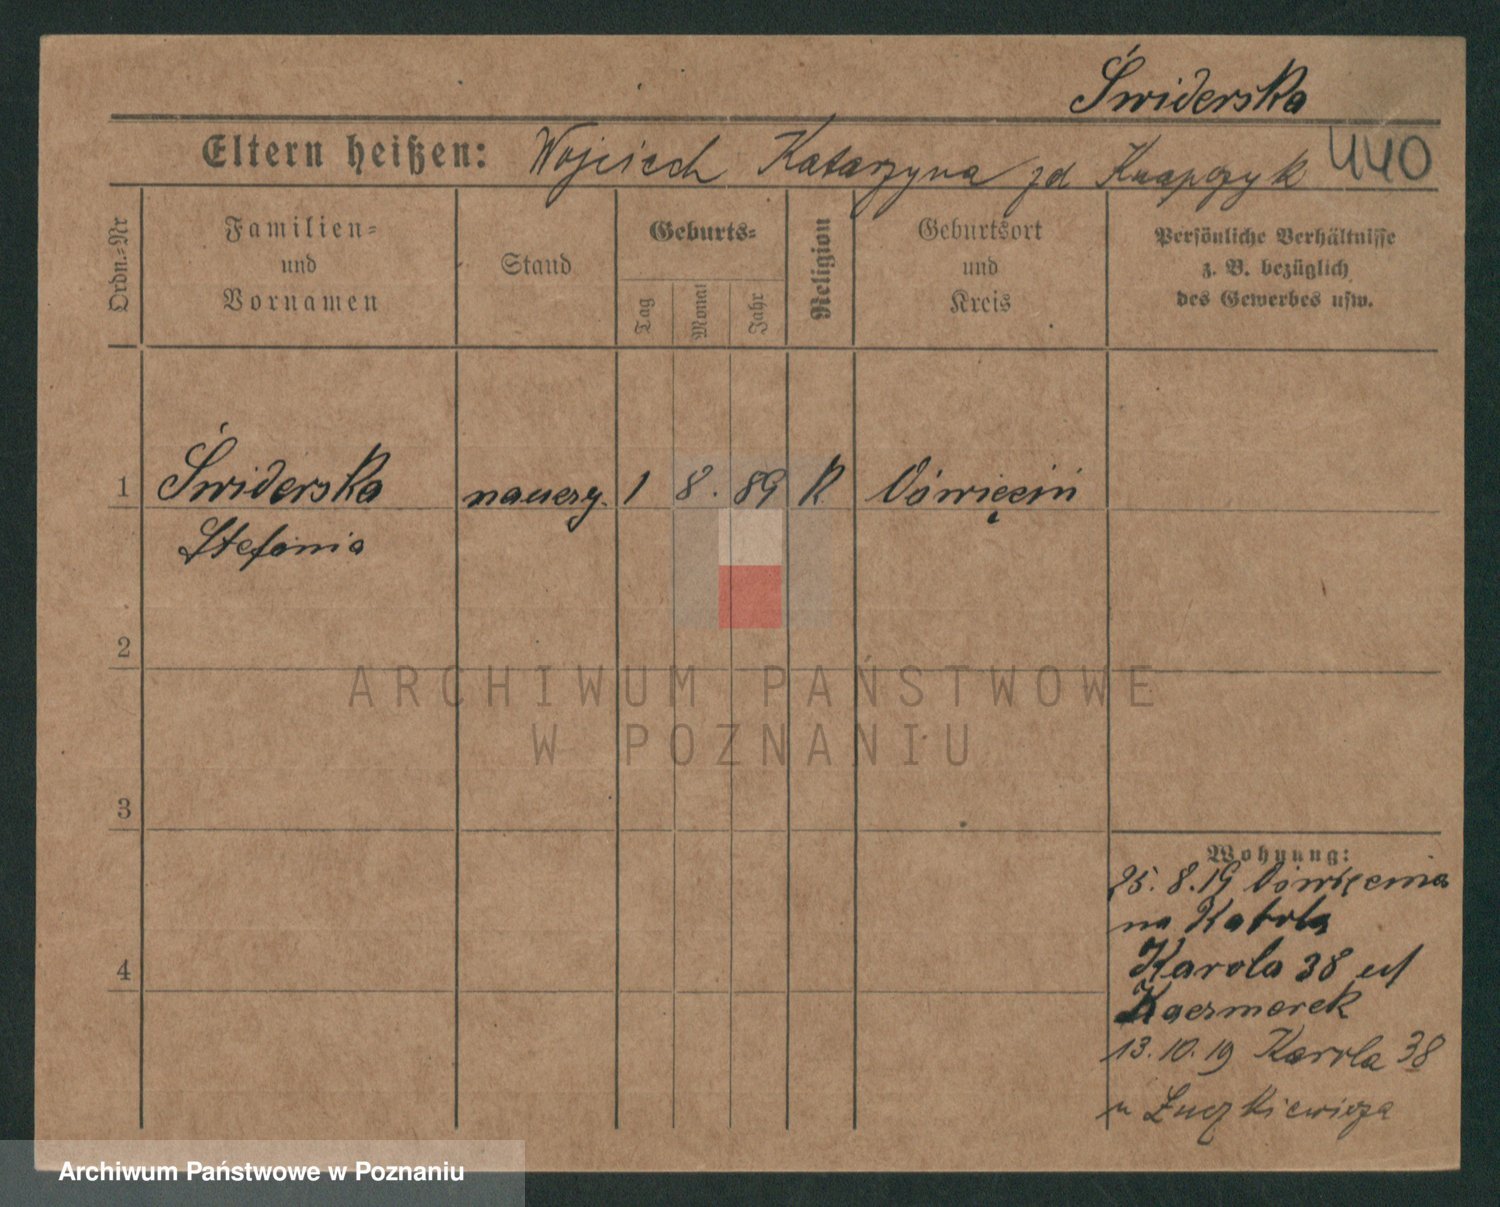 Świderska
Eltern heißen: Wojciech Katarzyna zd Knapczyk 440
Ordn.-Nr
Familien-
und
Vornamen
Stand
Geburts-
Tag
Monat
Jahr
Religion
Geburtsort
und
Kreis
Persönliche Verhältnisse
z. B. bezüglich
des Gewerbes usw.
1 Świderska nauczy. 1 8. 89 R Oświęcim
Stefania
2
ARCHIWUM PAŃSTWOWE
W POZNANIU
3
Wohnung:
25. 8. 19 Oświęcima
na Karola
4 Karola 38 u
Kaczmarek
13. 10. 19 Karola 38
u Łuczkiewicza
Archiwum Państwowe w Poznaniu